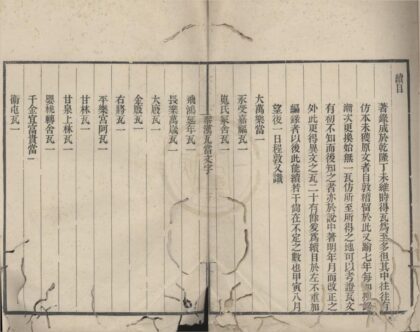 續目
著錄成於乾隆丁未維時得瓦爲至多但其中往往有
仿本未睹原文者自敦㩀留於此又踰七年每加推
漸次更換始無一瓦仿所至所得之地可以考證瓦文
有初不知而後知之者亦於說中著明年月而改正之
外此更得異文之瓦二十有餘爰爲續目於左不重加
編錄者以後此能續若干尚在不定之數也甲寅八月
望後一日程敦又識
大萬樂當一
永受嘉福瓦一
嵬氏冢舍瓦一
秦漢瓦當文字
飛鴻延年瓦一
長樂萬歲瓦一
大廐瓦一
金廐瓦一
右將瓦一
平樂宮阿瓦一
甘林瓦一
甘泉上林瓦一
嬰桃轉舍瓦一
千金宜富貴當一
衞屯瓦一